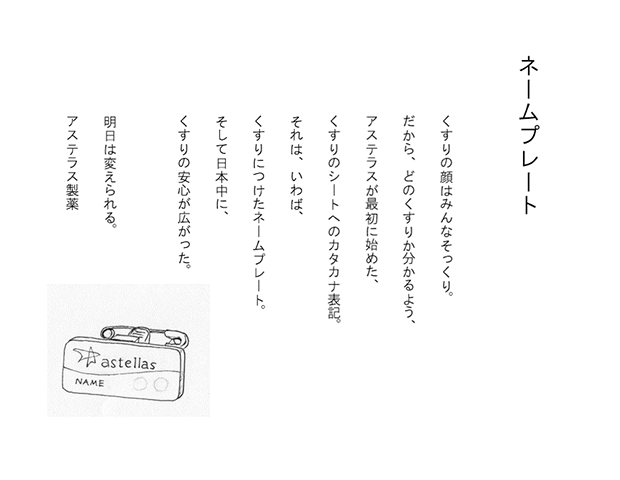 ネームプレート
くすりの顔はみんなそっくり。
だから、どのくすりか分かるよう、
アステラスが最初に始めた、
くすりのシートへのカタカナ表記。
それは、いわば、
くすりにつけたネームプレート。
そして日本中に、
くすりの安心が広がった。
明日は変えられる。
アステラス製薬
astellas
NAME